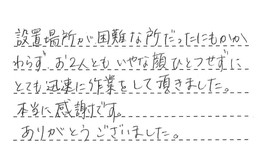 設置場所が困難な所だったにもかか
わらず、お2人ともいやな顔ひとつせずに
とても迅速に作業をして頂きました。
本当に感謝です。
ありがとうございました。